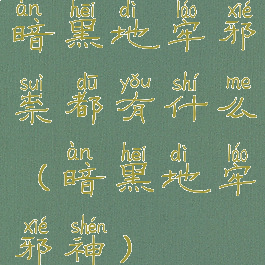 àn hēi dì láo xié
暗黑地牢邪
suì dū yǒu shí me
祟都有什么
àn hēi dì láo
（暗黑地牢
xié shén
邪神）